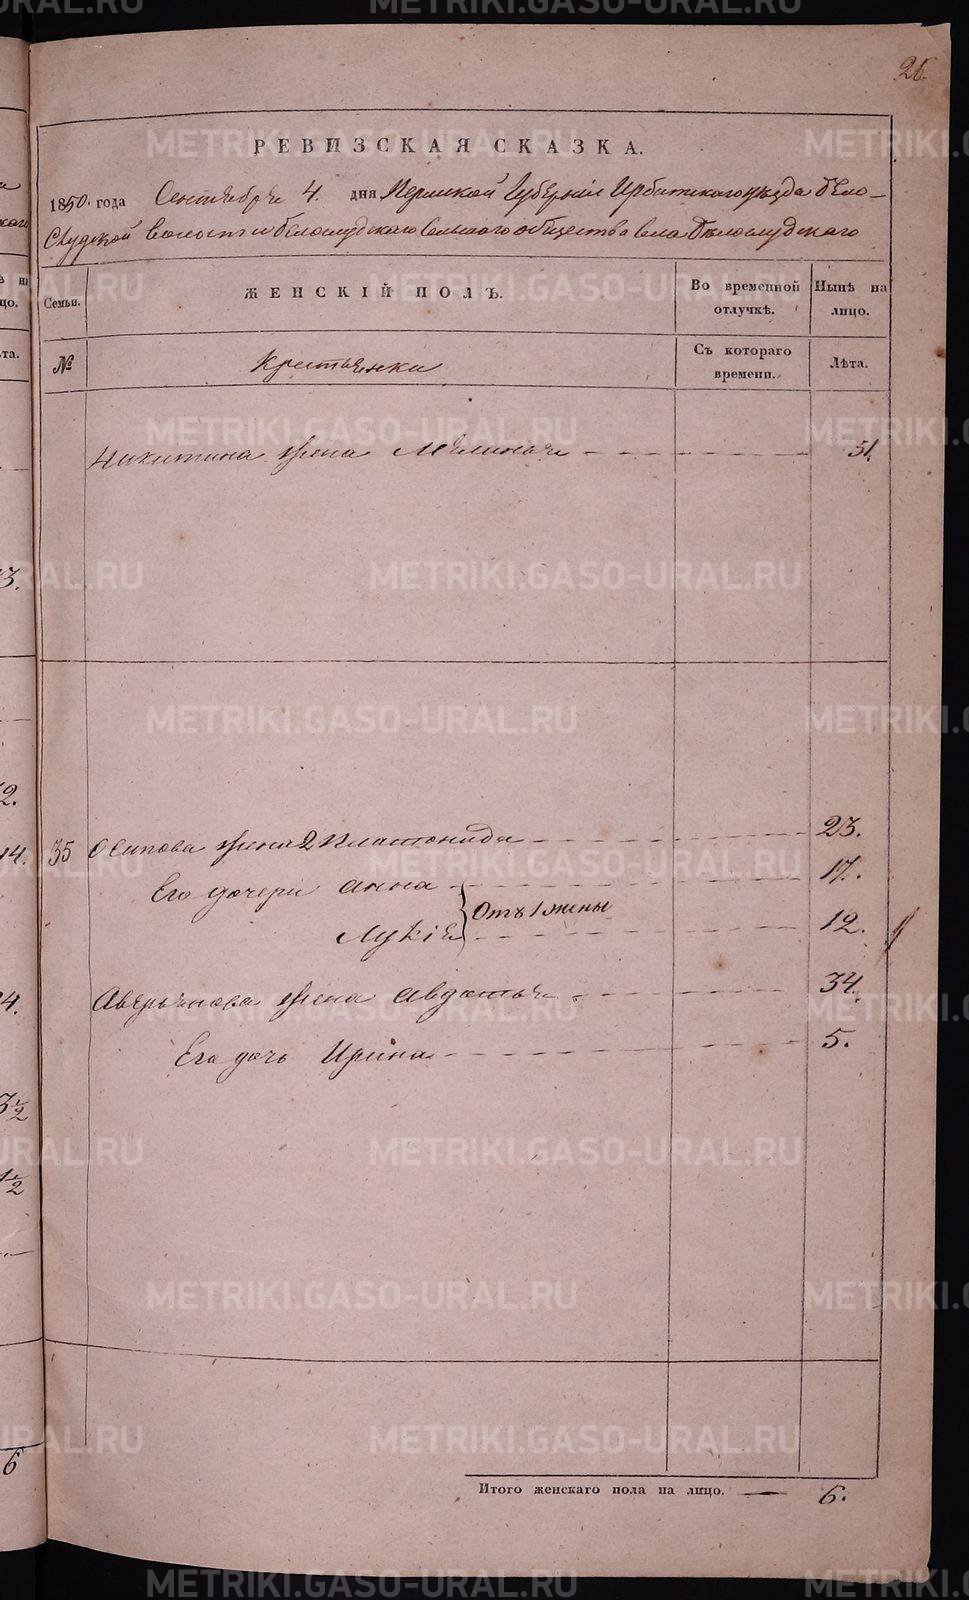 26.
РЕВИЗСКАЯ СКАЗКА.
1850. года Сентября 4. дня Пермской Губерніи Ирбитскаго уѣзда бѣло-
Слудской волости бѣлослудскаго сельскаго общества села бѣлослудскаго
Семьи.
ЖЕНСКІЙ ПОЛЪ.
Во временной отлучкѣ.
Нынѣ на лицо.
№
Крестьянки
Съ котораго времени.
Лѣта.
Никитина жена Меланья 51.
35 Осипова жена 2 Платонида 23.
Его дочери анна 17.
Отъ 1 жены
Лукія 12.
Аверьянова жена авдотья 34.
Его дочь Ирина 5.
Итого женскаго пола на лицо. — 6.
METRIKI.GASO-URAL.RU